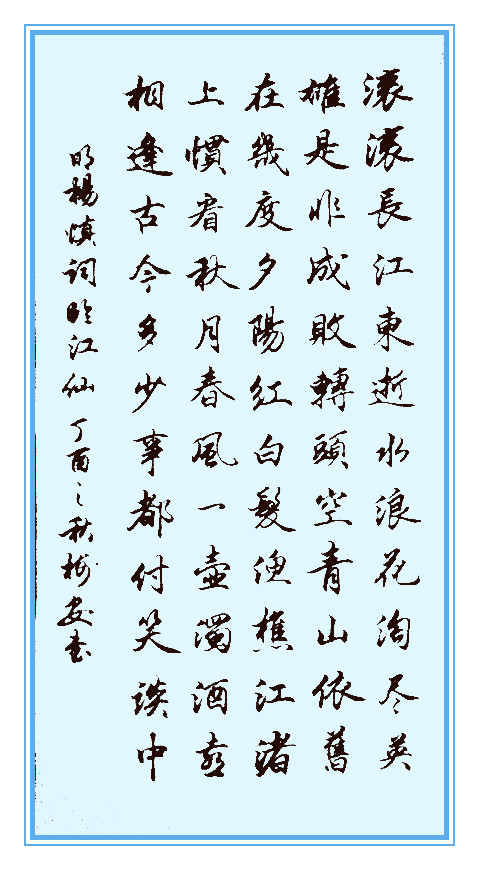 滚滚長江東逝水浪花淘尽英
雄是非成敗轉頭空青山依舊
在幾度夕陽紅白髮渔樵江渚
上慣看秋月春風一壺濁酒喜
相逢古今多少事都付笑談中
明楊慎詞临江仙 丁酉之秋 書